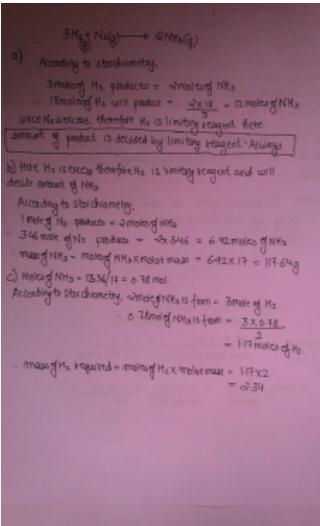 3H₂ + N₂(g) → 2NH₃(g)
(g)
a) According to stoichiometry,
3 moles of H₂ produces = 2 moles of NH₃
∴ 18 mole of H₂ will produce = 2×18/3 = 12 moles of NH₃
since N₂ is excess, therefore H₂ is limiting reagent here
amount of product is decided by limiting reagent - Always
b) Here H₂ is excess therefore N₂ is limiting reagent and will
decide amount of NH₃
According to stoichiometry,
1 mole of N₂ produces = 2 moles of NH₃
∴ 3.46 mole of N₂ produce = 2×3.46 = 6.92 moles of NH₃
∴ mass of NH₃ = moles of NH₃ × molar mass = 6.92×17 = 117.64g
c) moles of NH₃ = 13.36/17 = 0.78 mol.
According to stoichiometry, 2 mole of NH₃ is form = 3 mole of H₂
∴ 0.78 mol of NH₃ is form = 3×0.78/2
= 1.17 moles of H₂
∴ mass of H₂ required = moles of H₂ × molar mass = 1.17×2
= 2.34